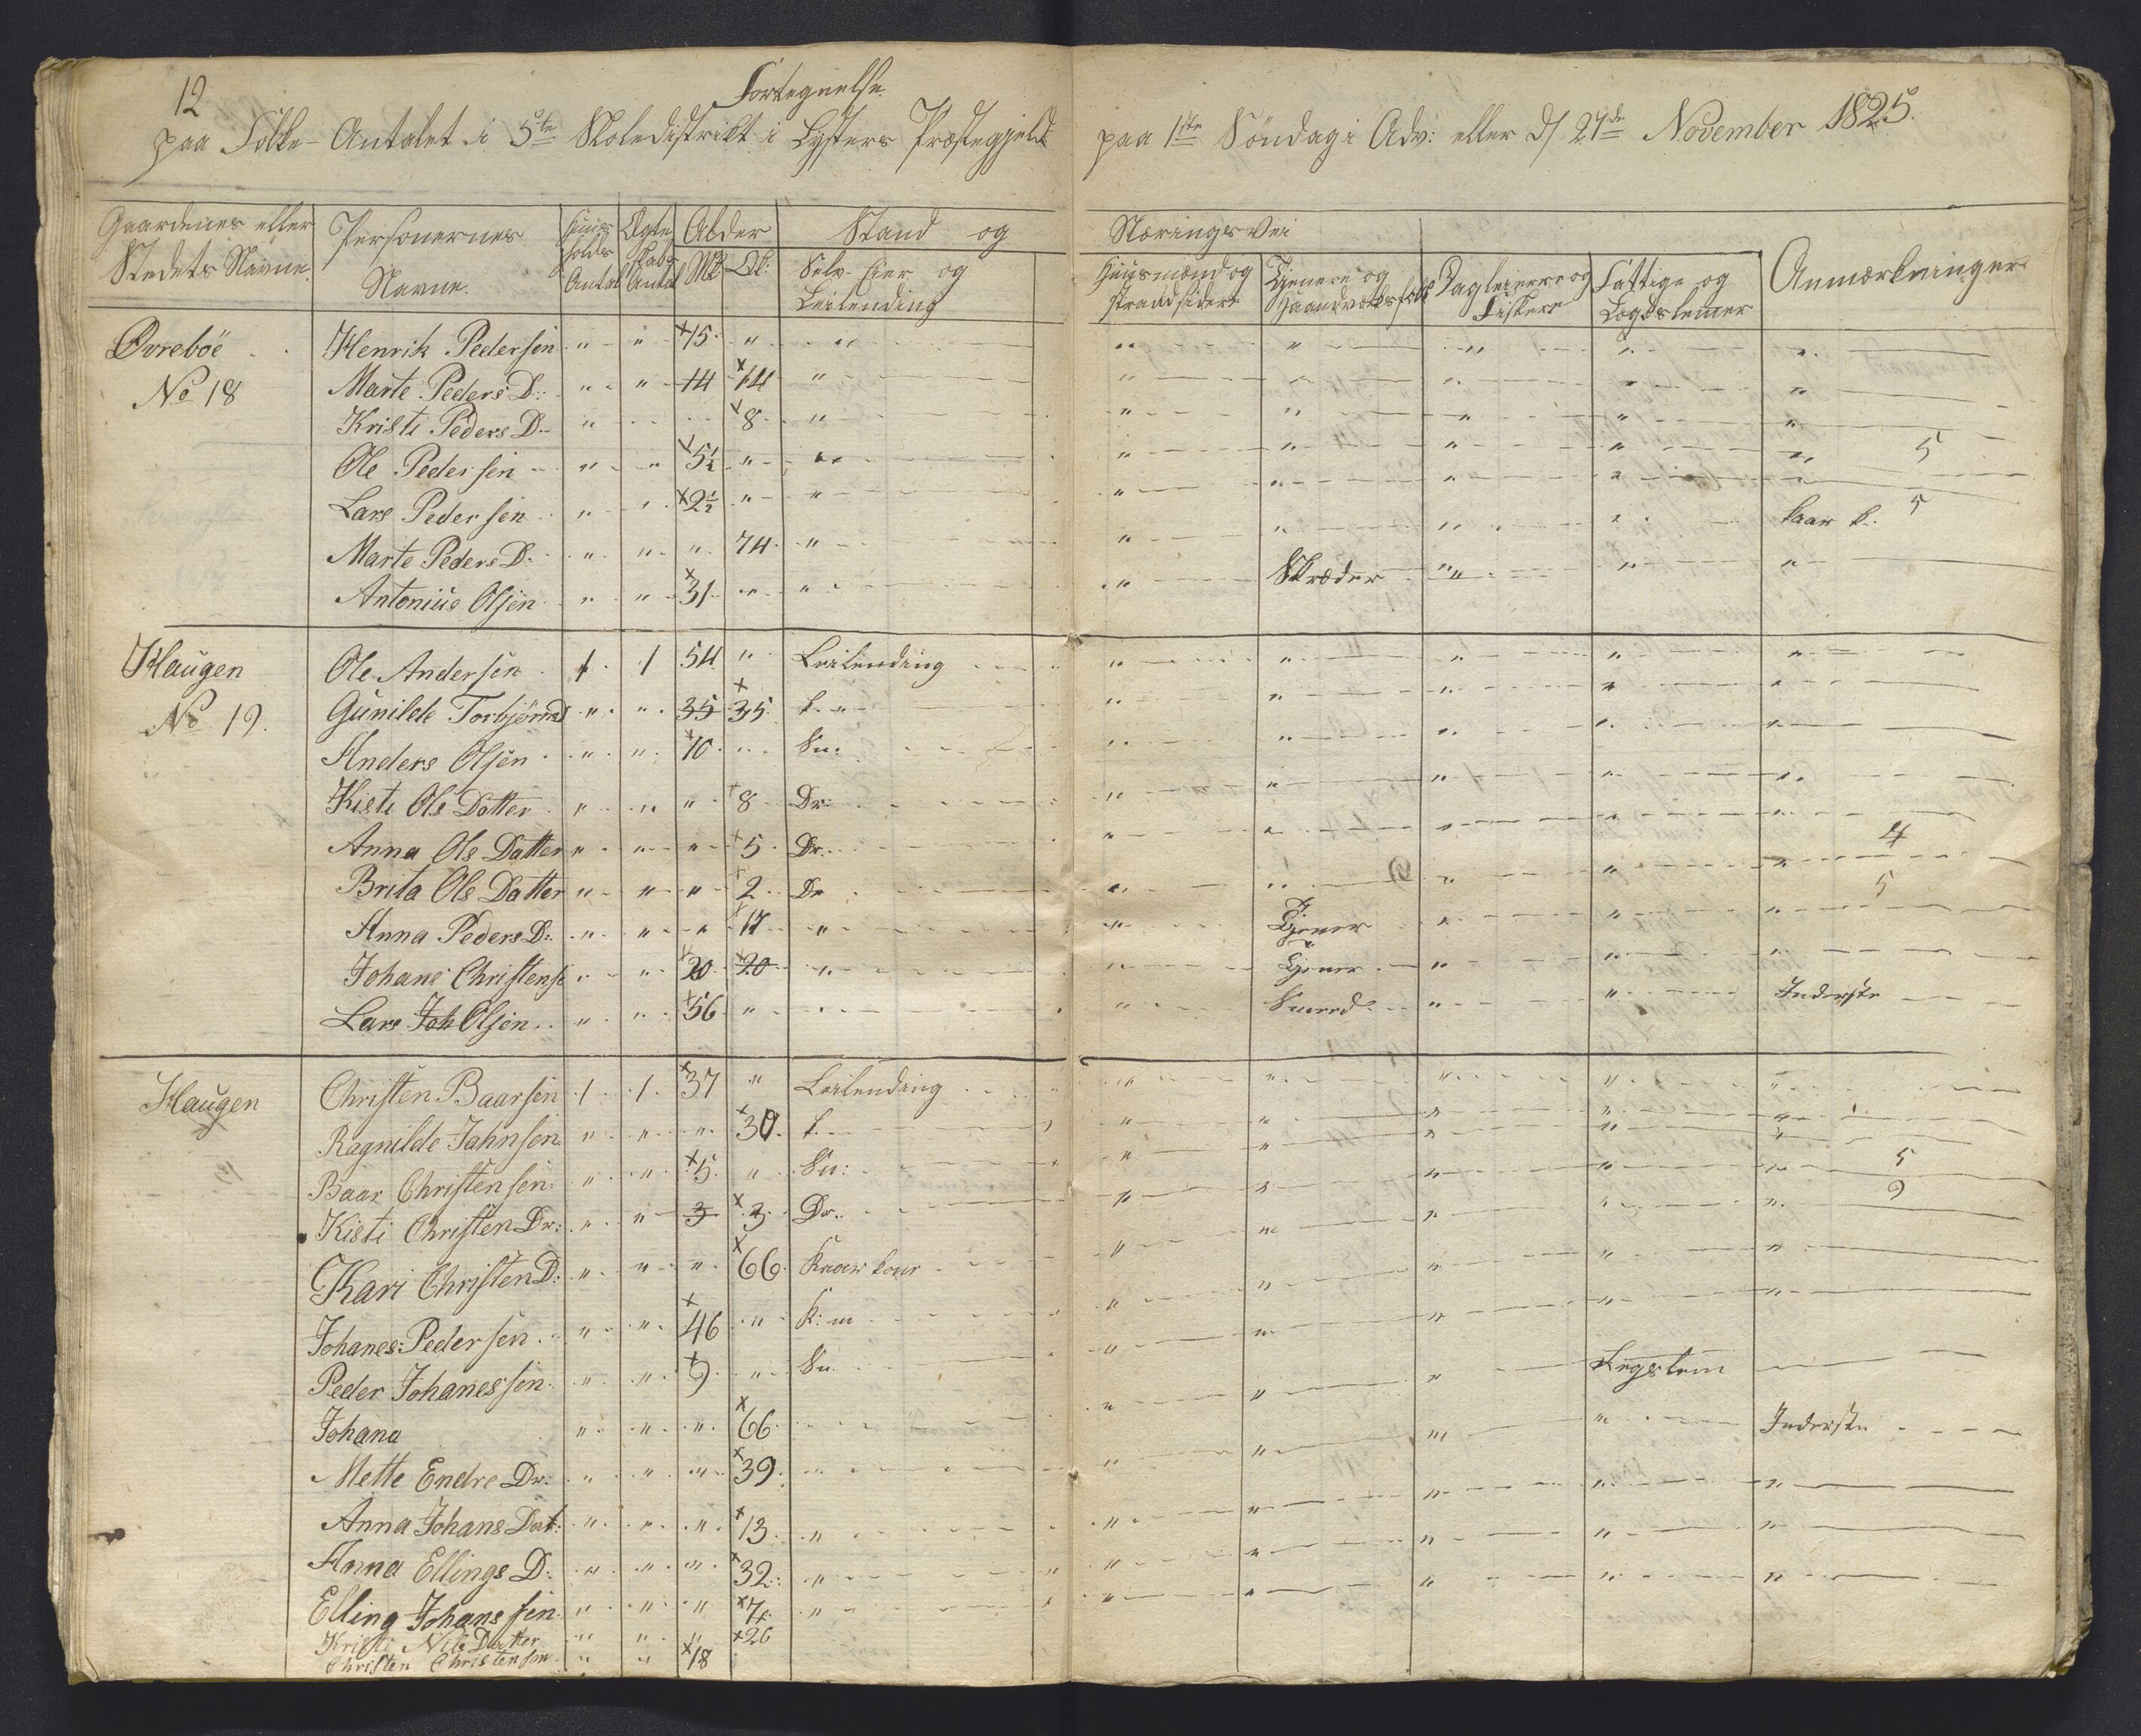 12
Fortegnelse
paa Folke-Antalet i 5te Skoledistrikt i Lysters Præstegjeld paa 1ste Söndag i Adv: eller d/ 27de November 1825.
Gaardenes eller Stedets Navne. Personernes Navne. Huusholds Antal Ægteskabs Antal Alder Mk: Qk: Stand og Næringsvei
Selv-Eier og Leilending Huusmænd og Strandsidere Tjenere og Haandværksfolk Dagleiere og Fiskere Fattige og Lægdslemer Anmærkninger
Øvreböe Henrik Pedersen " " 15 "
No 18 Marte Peders D: " " 14 14 "
Kristi Peders D " 8 "
Ole Pedersen " " 5½ " " 5
Lars Pedersen " " 2½ " " 5
Marte Peders D: " " " 74 " kaar k.
Antonius Olsen " " 31 " " Skræder
Haugen Ole Andersen 1 1 54 " Leilending
No 19. Gunilde TorbjörnsD " " 35 35 k.
Anders Olsen " " 10 " Sn:
Kisti Ols Dotter " " " 8 Dr:
Anna Ols Datter " " " 5 Dr. 4
Brita Ols Datter " " " 2 Dr 5
Anna Peders D: " " " 17 " Tjener
Johans Christens " " 20 20 " Tjener
Lars Joh Olsen " " 56 " Smed Inderste
Haugen Christen Baarsen 1 1 37 " Leilending
Ragnilde Jahnsen " " " 30 k.
Baar Christensen " " 5 " Sn: 5
Kisti Christen Dr: " " 3 3 Dr. 2
Kari Christen D: " " " 66 Kaar kone
Johanes Pedersen " " 46 " K: m
Peder Johanessen " " 9 " Sn Legslem
Johana " " " 66 Inderste
Mette Endre Dr: " " " 39
Anna Johans Dat: " " " 13 "
Anna Ellings D: " " " 32 "
Elling Johanssen " " " 7 "
Kristi Nils Datter " " " 26
Christen Christensen " " 18